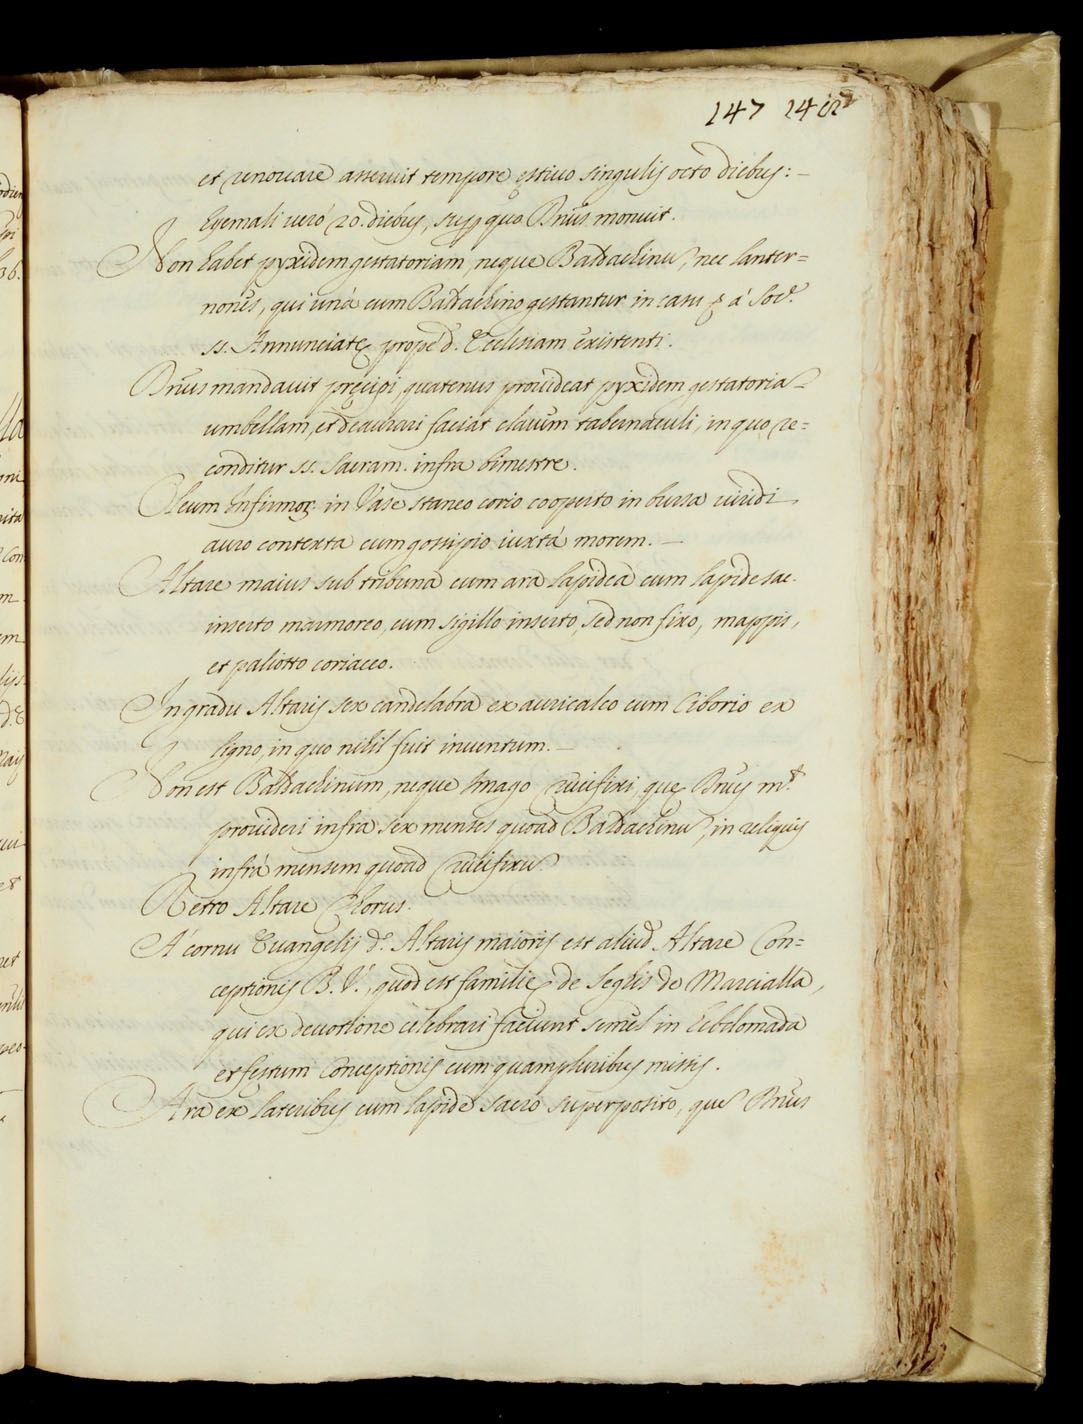 147 1402
et renouare asseruit tempore ęstiuo singulis octo diebus: –
hyemali uerò 20. diebus, sup. quo Dn̄us monuit.
Non habet pyxidem gestatoriam, neque Baldachinū, nec lanter=
nones, qui unà cum Baldachino gestantur in casu à Soc.e
ss. Annunciatę propè d. Ecclesiam existenti.
Dn̄us mandauit pręcipi, quatenus prouideat pyxidem gestatoriā
umbellam, et deaurari faciat clauum tabernaculi, in quo re=
conditur ss. Sacram. infra bimestre.
Oleum Infirmor in Vase staneo corio cooperto in bursa uiridi
auro contexta cum gossipio iuxtà morem. –
Altare maius sub tribuna cum ara lapidea cum lapide sac.
inserto marmoreo, cum sigillo inserto, sed non fixo, mappis,
et paliotto coriaceo.
In gradu Altaris sex candelabra ex auricalco cum Ciborio ex
ligno, in quo nihil fuit inuentum. –
Non est Baldachinum, neque Imago Crucifixi, quę Dn̄us m.t
prouideri infra sex menses quoad Baldachinū, in reliquis
infrà mensem quoad Crucifixū.
Retro Altare Chorus.
A' cornu Euangelij d.i Altaris maioris est aliud Altare Con=
ceptionis B. V., quod est familię de Seghis de Marcialla,
qui ex deuotione celebrari faciunt semel in hebdomada
et festum Conceptionis cum quampluribus missis.
Ara ex lateribus cum lapide sacro superposito, quē Dn̄us